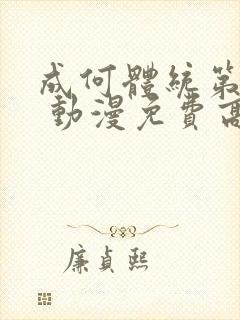 成何體統第
動漫免費高
廉貞熙